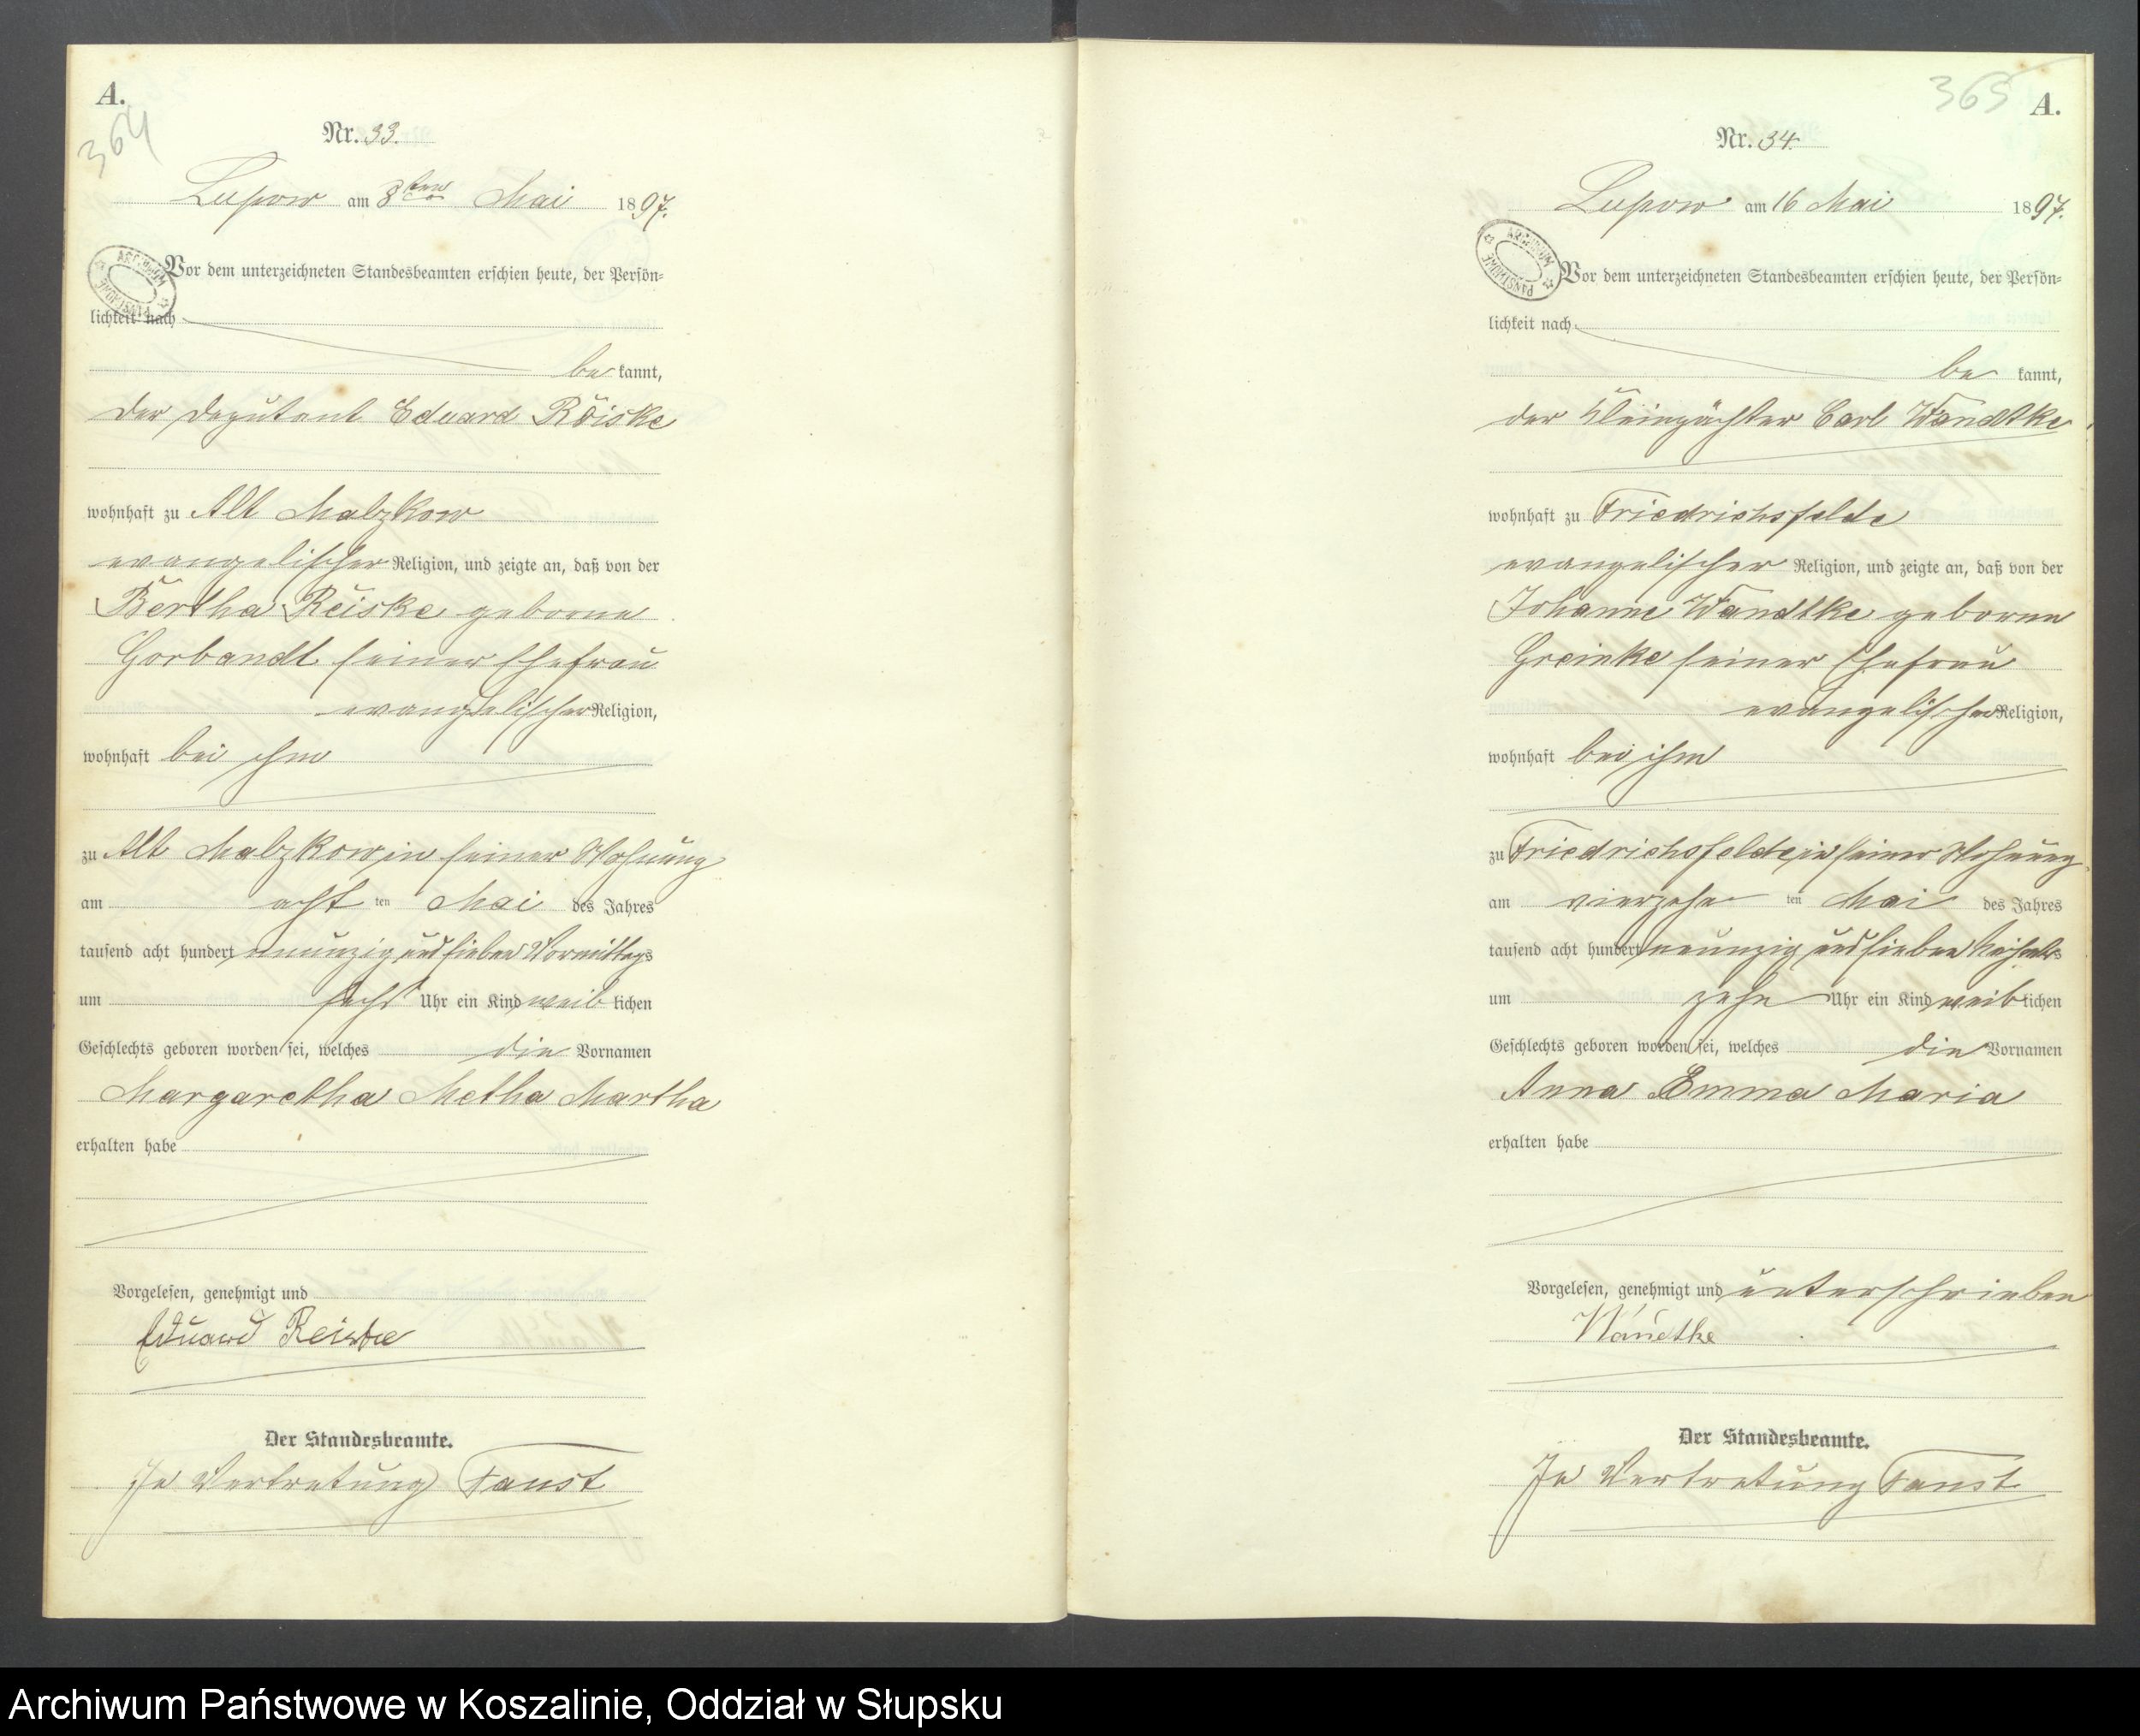 A.
364
Nr. 33.
Lupow am 8ten Mai 1897.
ARCHIWUM PAŃSTWOWE
Vor dem unterzeichneten Standesbeamten erschien heute, der Persön-
lichkeit nach
be kannt,
der Deputant Eduard Reiske
wohnhaft zu Alt Malzkow
evangelischer Religion, und zeigte an, daß von der
Bertha Reiske geborne
Gorbandt seiner Ehefrau
evangelischer Religion,
wohnhaft bei ihm
zu Alt Malzkow, in seiner Wohnung
am acht ten Mai des Jahres
tausend acht hundert neunzig und sieben Vormittags
um sechs Uhr ein Kind weib lichen
Geschlechts geboren worden sei, welches die Vornamen
Margarethha Metha Martha
erhalten habe
Vorgelesen, genehmigt und
Eduard Reiske
Der Standesbeamte.
In Vertretung Faust
365
A.
Nr. 34.
Lupow am 16 Mai 1897.
ARCHIWUM PAŃSTWOWE
Vor dem unterzeichneten Standesbeamten erschien heute, der Persön-
lichkeit nach
be kannt,
der Kleinpächter Carl Wandtke
wohnhaft zu Friedrichsfelde
evangelischer Religion, und zeigte an, daß von der
Johanne Wandtke geborne
Greinke seiner Ehefrau
evangelischer Religion,
wohnhaft bei ihm
zu Friedrichsfelde, in seiner Wohnung
am vierzehn ten Mai des Jahres
tausend acht hundert neunzig und sieben Nachmitt s
um zehn Uhr ein Kind weib lichen
Geschlechts geboren worden sei, welches die Vornamen
Anna Emma Maria
erhalten habe
Vorgelesen, genehmigt und unterschrieben
Wandtke
Der Standesbeamte.
In Vertretung Faust
Archiwum Państwowe w Koszalinie, Oddział w Słupsku